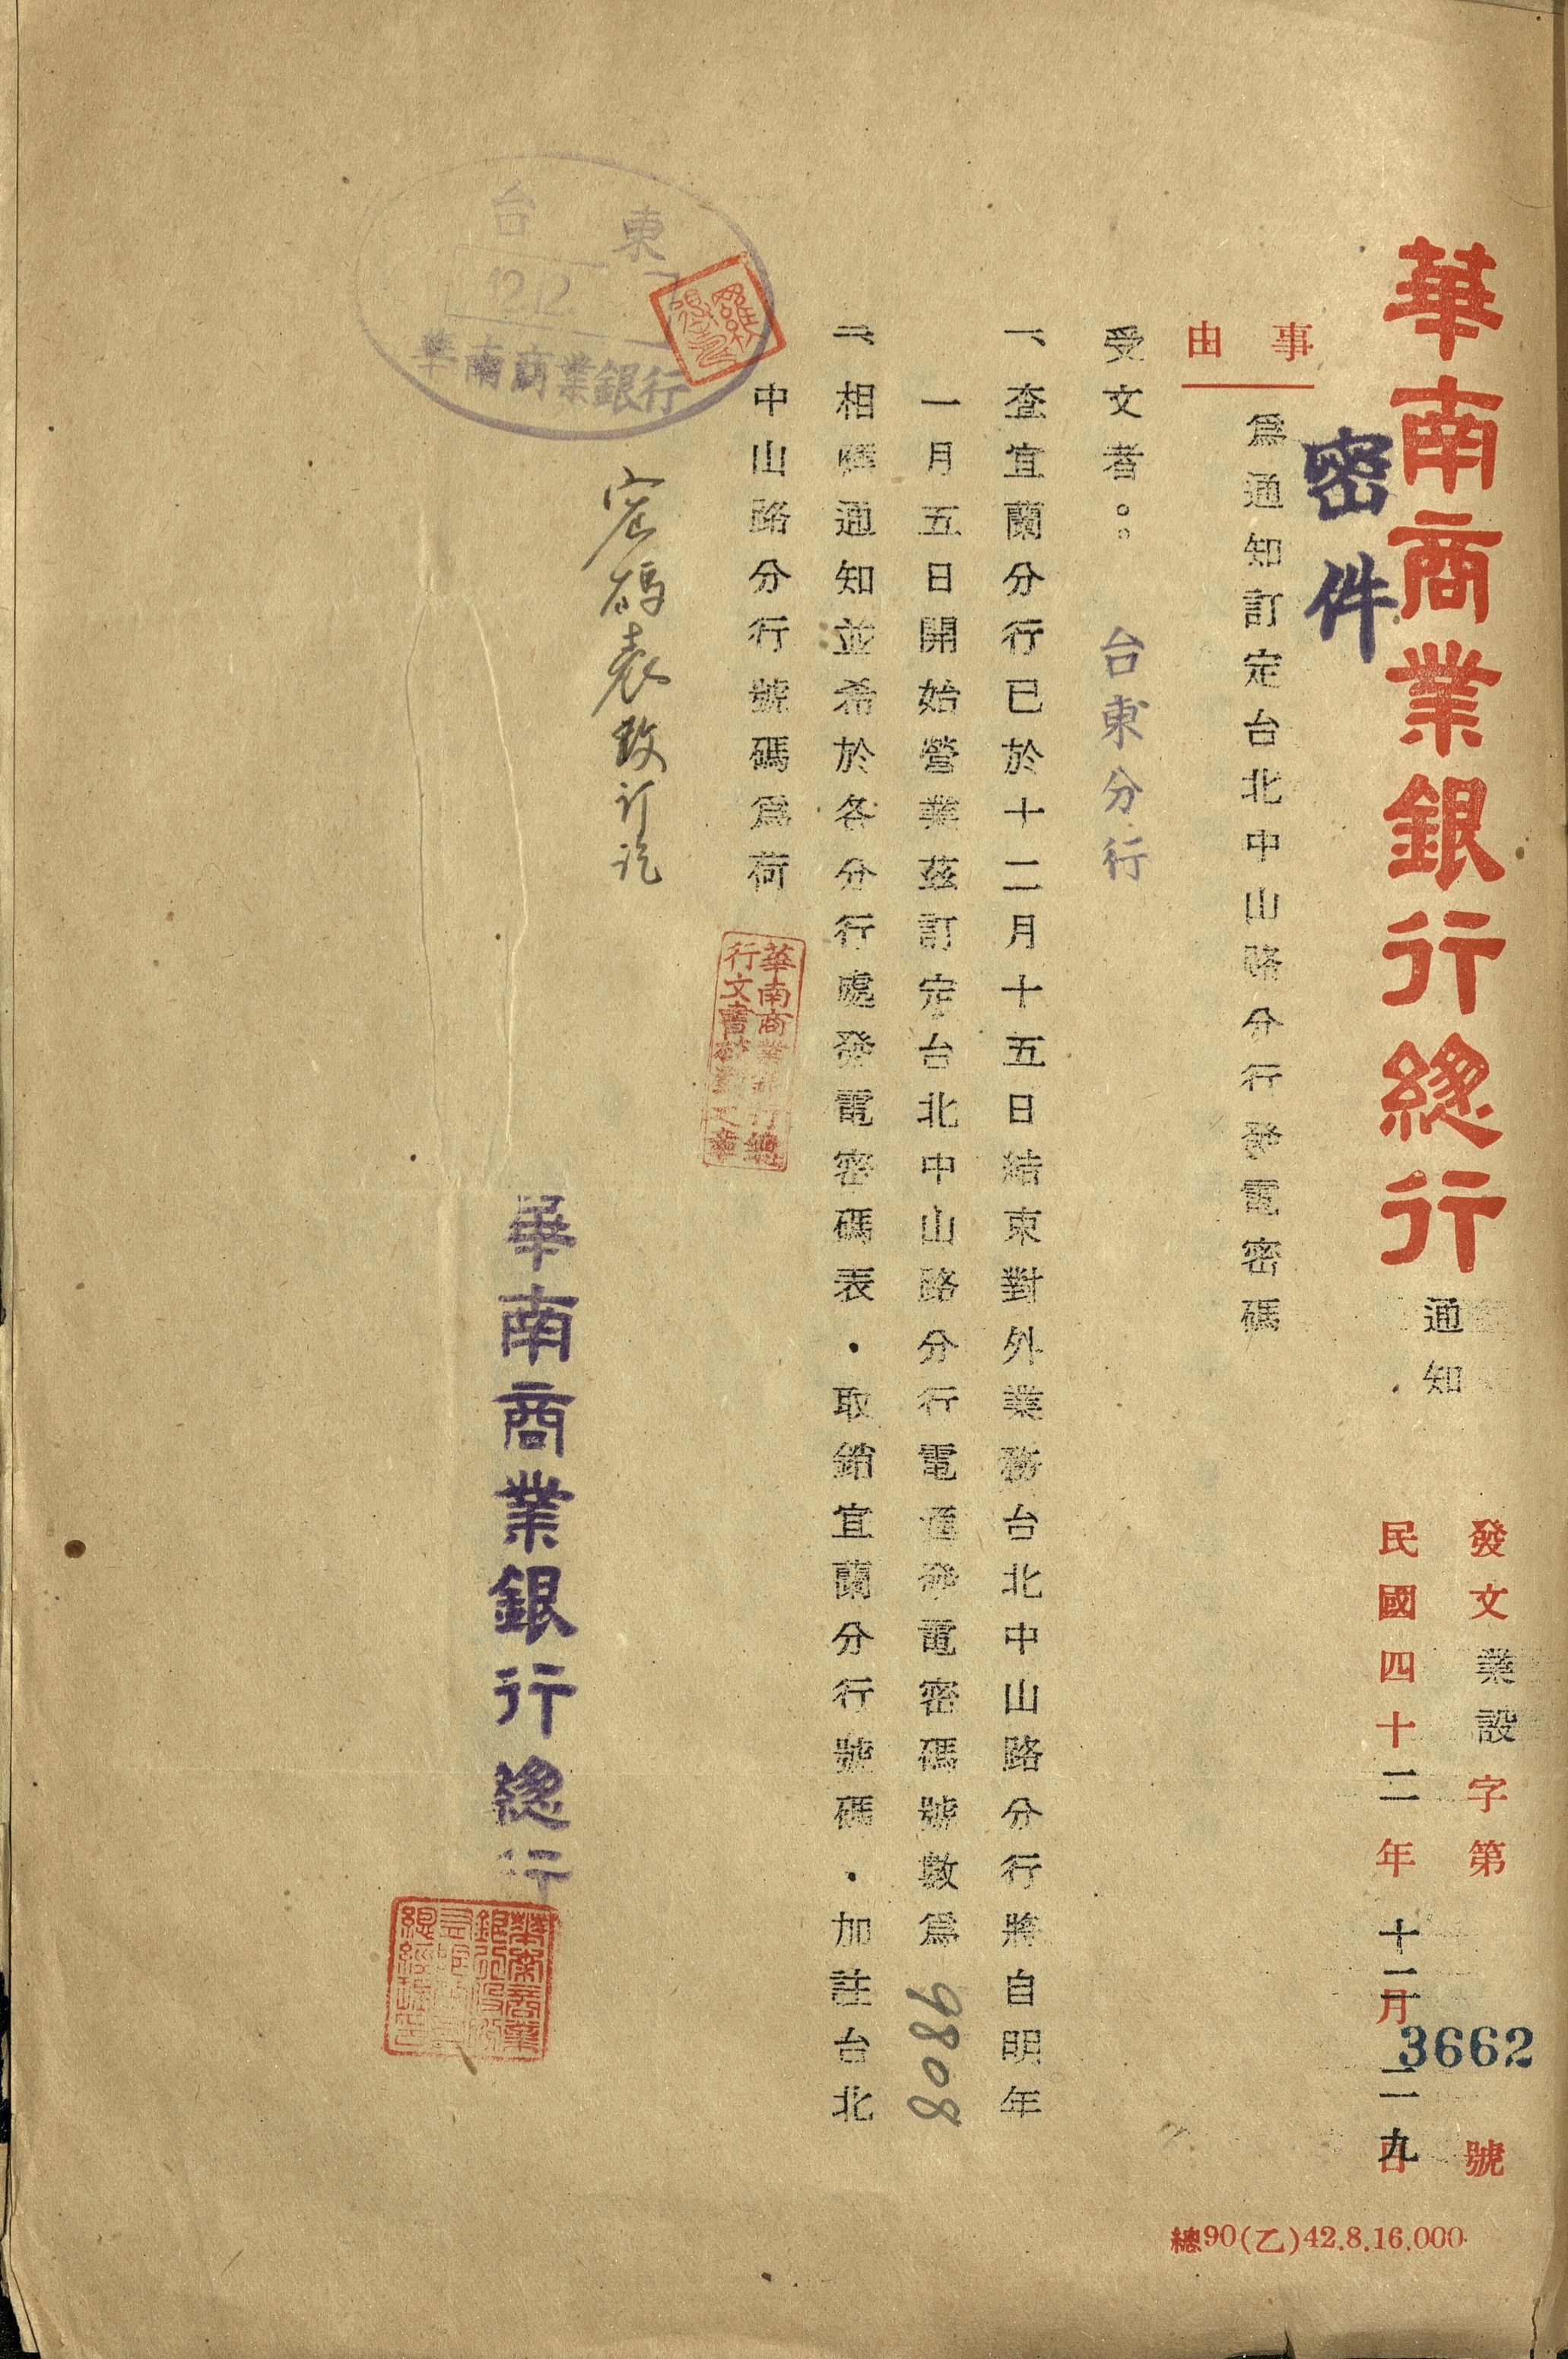 華南商業銀行總行 通知
發文業設字第3662號
民國四十二年十二月二九日
密件
事由
爲通知訂定台北中山路分行發電密碼
受文者：台東分行
一、查宜蘭分行已於十二月十五日結束對外業務台北中山路分行將自明年
一月五日開始營業茲訂定台北中山路分行電通發電密碼號數爲9808
二、相應通知並希於各分行處發電密碼表・取銷宜蘭分行號碼・加註台北
中山路分行號碼爲荷
華南商業銀行總
行文書校對之章
密碼表改訂訖
台東
華南商業銀行
華南商業銀行總行
總90(乙)42.8.16.000